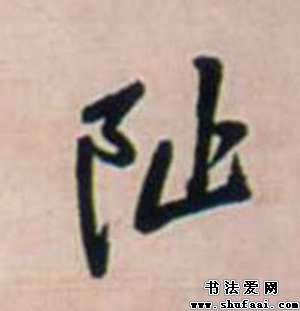 阯
书法爱网
www.shufaai.com